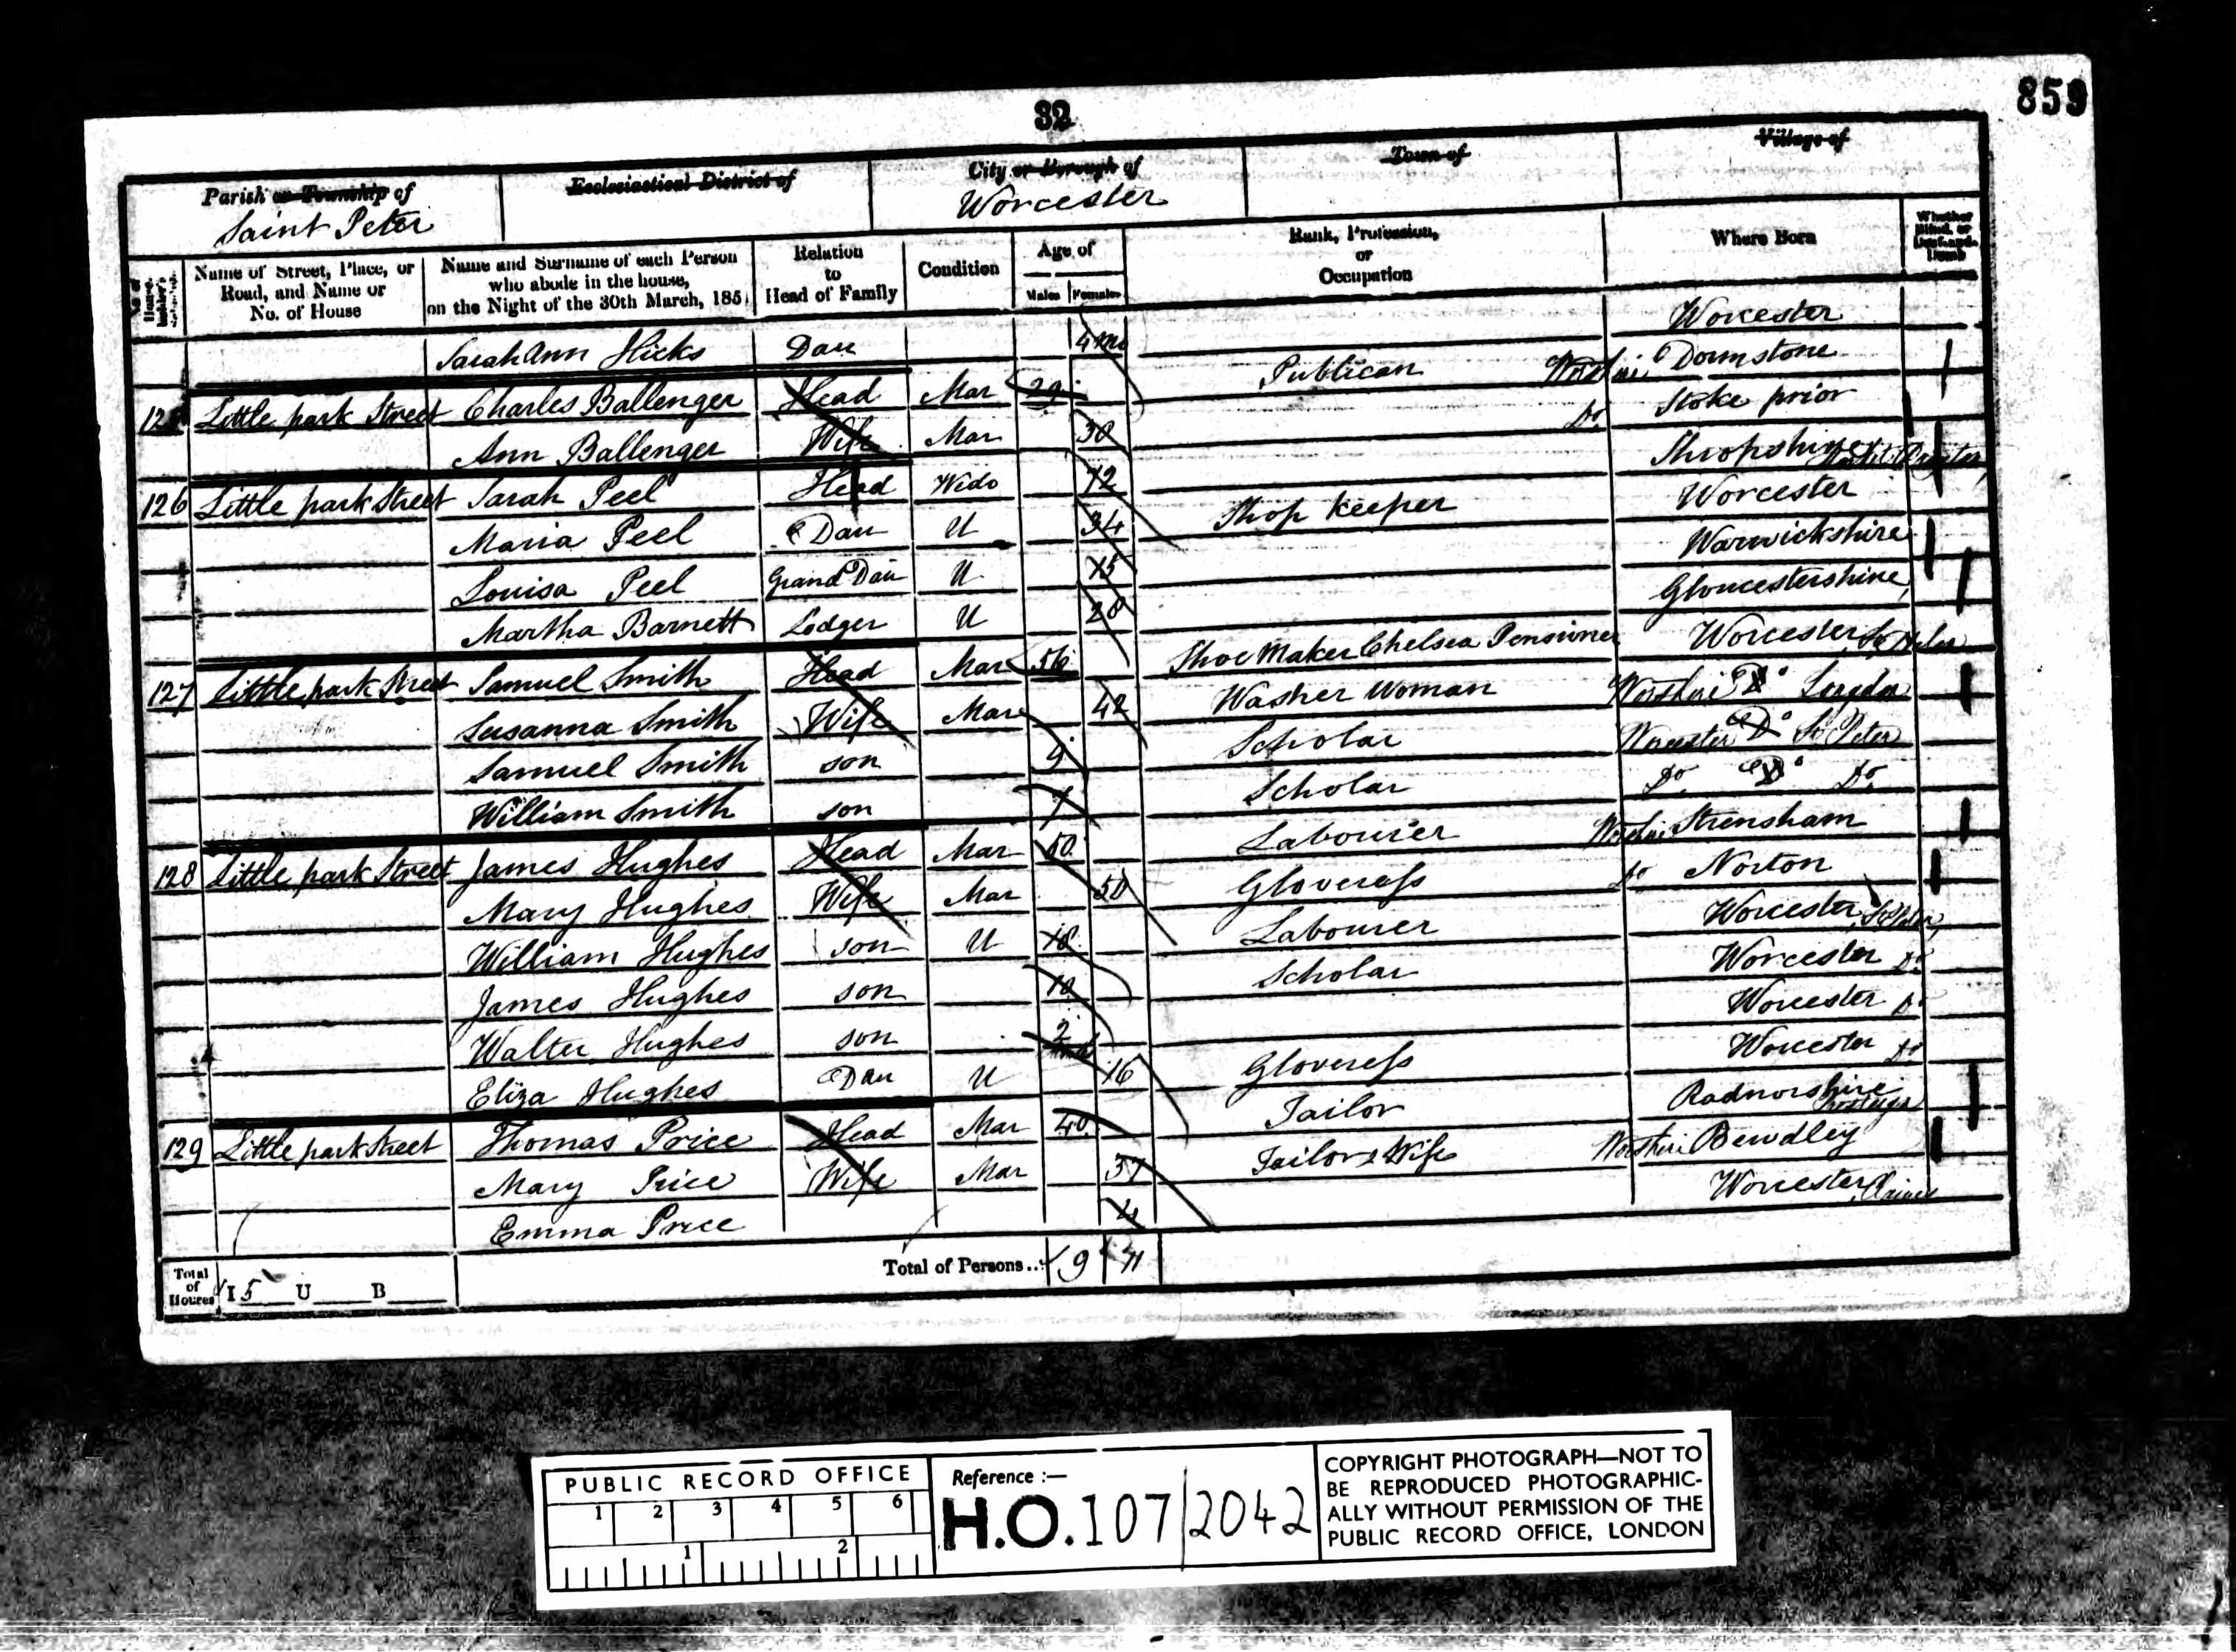 859
32
Parish or Township of
Saint Peter
Ecclesiastical District of
City or Borough of
Worcester
Town of
Village of
No. of House-holder's Schedule
Name of Street, Place, or Road, and Name or No. of House
Name and Surname of each Person who abode in the house, on the Night of the 30th March, 1851
Relation to Head of Family
Condition
Age of
Males Females
Rank, Profession, or Occupation
Where Born
Whether Blind, or Deaf-and-Dumb
Sarah Ann Hicks Dau 4 Mo Worcester
125 Little park Street Charles Ballenger Head Mar 29 Publican Dormstone
Ann Ballenger Wife Mar 30 Do Stoke prior
126 Little park Street Sarah Peel Head Wido 72 Shropshire
Maria Peel Dau U 34 Shop Keeper Worcester
Louisa Peel Grand Dau U 15 Warwickshire
Martha Barnett Lodger U 28 Gloucestershire
127 Little park Street Samuel Smith Head Mar 56 Shoe Maker Chelsea Pensioner Worcester
Susanna Smith Wife Mar 42 Washer Woman Do
Samuel Smith son 9 Scholar Worcester Do St Peter
William Smith son 7 Scholar Do Do Do
128 Little park Street James Hughes Head Mar 50 Labourer Strensham
Mary Hughes Wife Mar 50 Gloveress Do Norton
William Hughes son U 18 Labourer Worcester St Peter
James Hughes son 10 Scholar Worcester Do
Walter Hughes son 2 Worcester Do
Eliza Hughes Dau U 16 Gloveress Worcester Do
129 Little park Street Thomas Price Head Mar 40 Tailor Radnorshire
Mary Price Wife Mar 37 Tailors Wife Bewdley
Emma Price 4 Worcester Claines
Total of Houses I 5 U B
Total of Persons.. 9 11
PUBLIC RECORD OFFICE
1 2 3 4 5 6
1 2
Reference :—
H.O. 107/2042
COPYRIGHT PHOTOGRAPH—NOT TO
BE REPRODUCED PHOTOGRAPHIC-
ALLY WITHOUT PERMISSION OF THE
PUBLIC RECORD OFFICE, LONDON